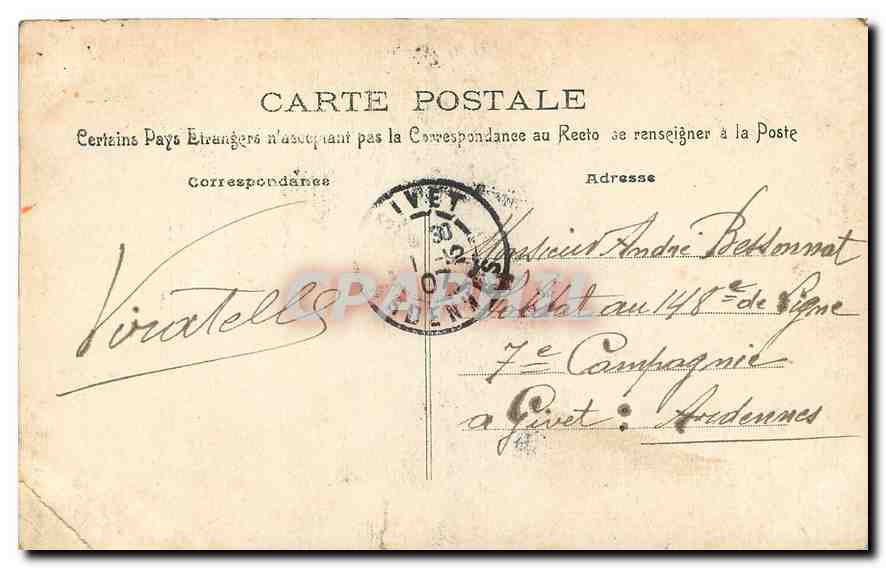 CARTE POSTALE
Certains Pays Etrangers n'acceptant pas la Correspondance au Recto se renseigner à la Poste
Correspondance
Adresse
Monsieur André Bessonnat
Soldat au 148e de Ligne
7e Campagnie
a Givet : Ardennes
GIVET
30
07
ARDENNES
CPAPHIL